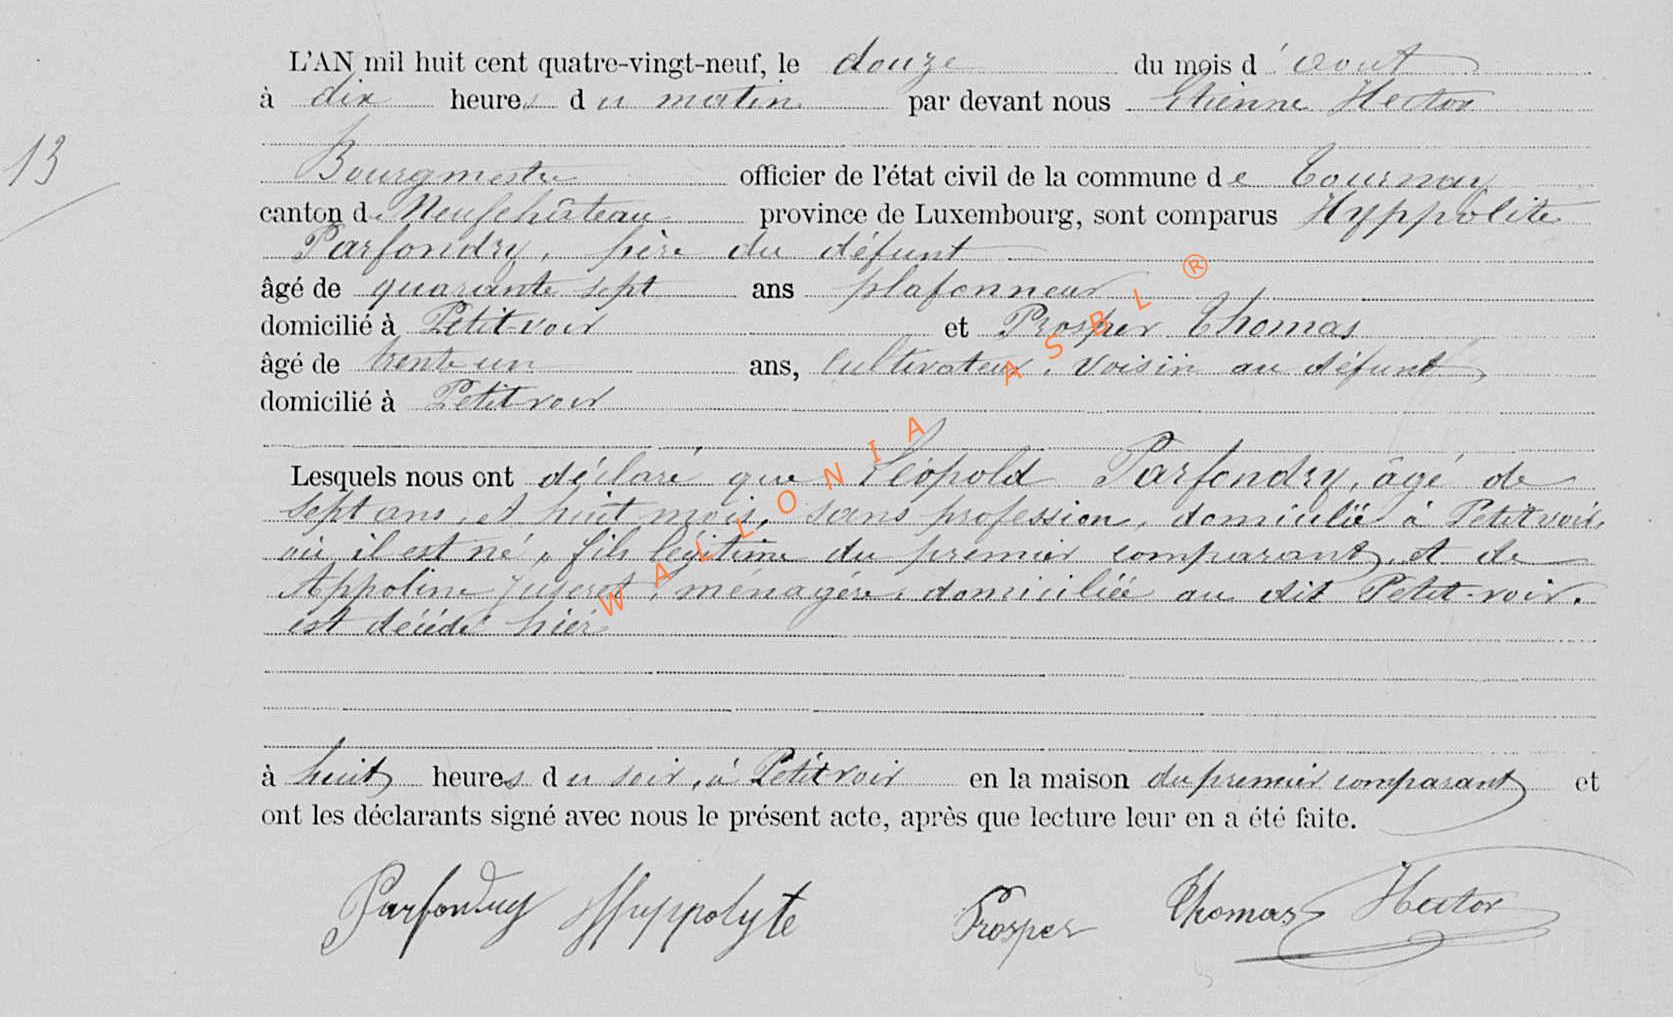 L'AN mil huit cent quatre-vingt-neuf, le douze du mois d'aout
à dix heures du matin par devant nous Etienne Hector
13
Bourgmestre officier de l'état civil de la commune de Tournay
canton de Neufchâteau province de Luxembourg, sont comparus Hyppolite
Parfondry, père du défunt
âgé de quarante sept ans plafonneur
domicilié à Petitvoir et Prosper Thomas
âgé de trente un ans, cultivateur, voisin au défunt
domicilié à Petitvoir
Lesquels nous ont déclaré que Léopold Parfondry, âgé de
sept ans, et huit mois, sans profession, domicilié à Petitvoir,
où il est né, fils légitime du premier comparant, et de
Appoline, ménagère, domiciliée au dit Petit-voir.
est décédé hier
à huit heures du soir, à Petitvoir en la maison du premier comparant et
ont les déclarants signé avec nous le présent acte, après que lecture leur en a été faite.
Parfondry Hyppolyte Prosper Thomas Hector
WALLONIA ASBL ®